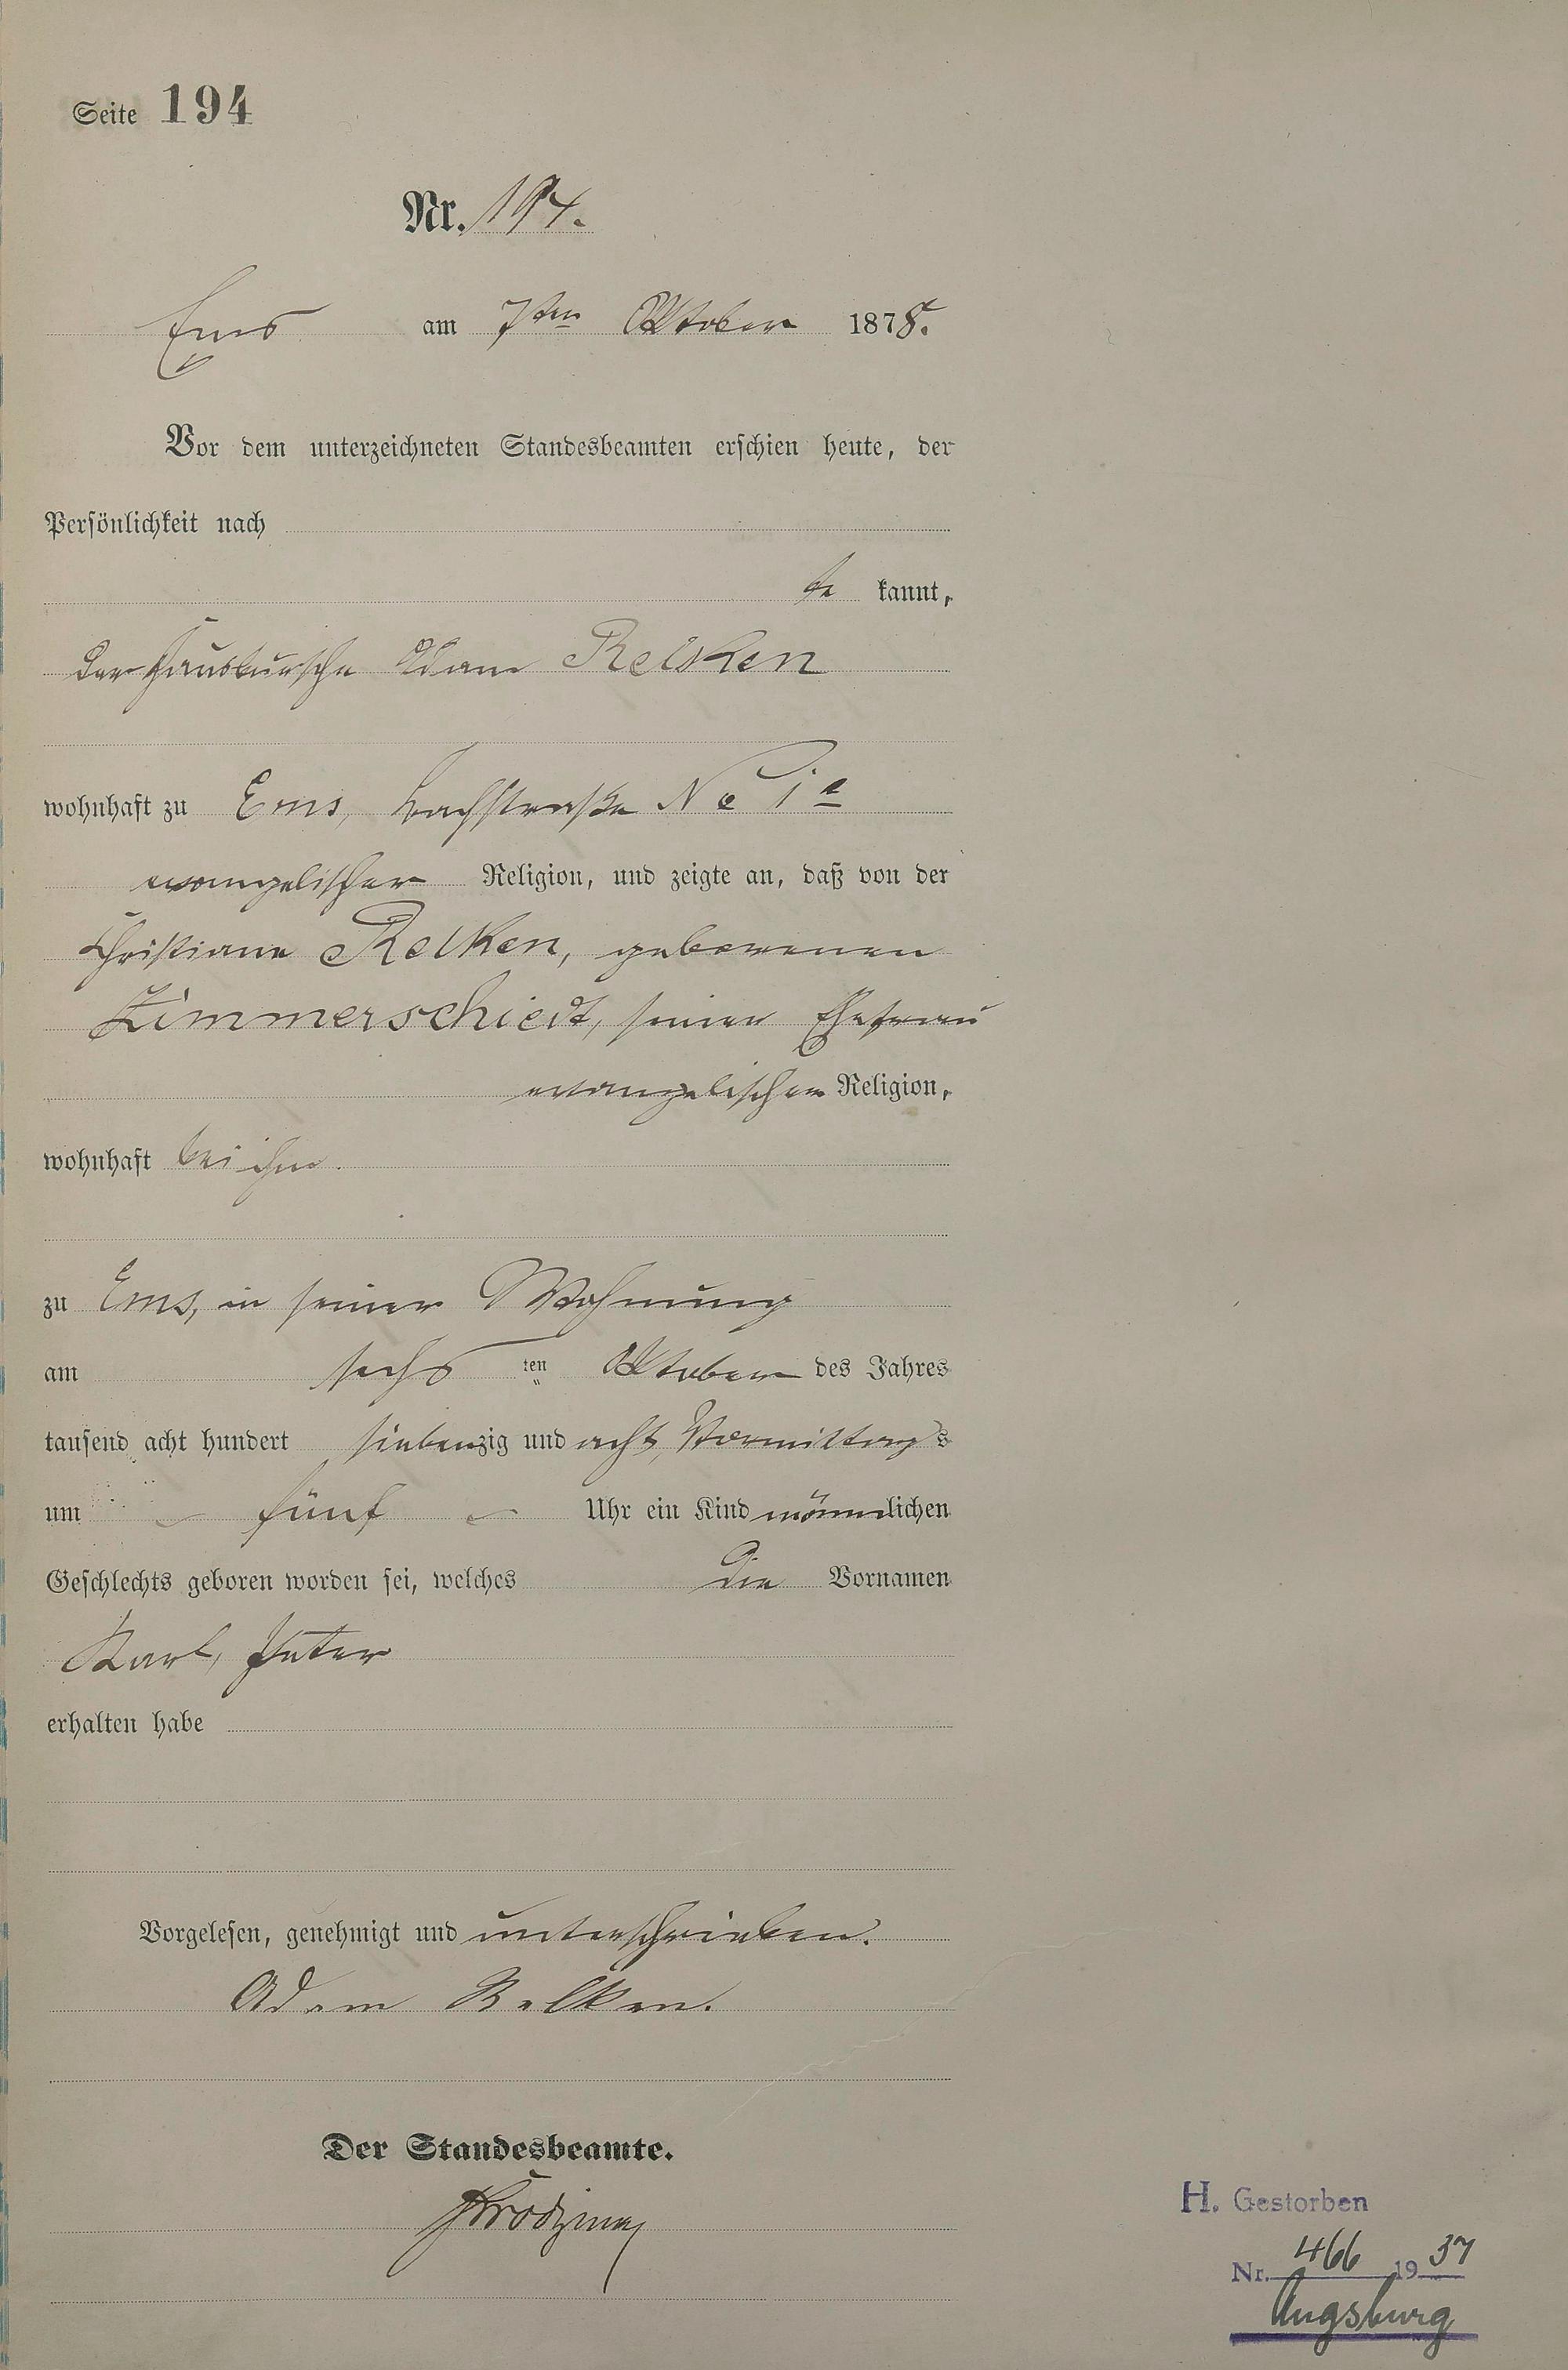 Seite 194
Nr. 194.
Ems am 7ten Oktober 1878.
Vor dem unterzeichneten Standesbeamten erschien heute, der
Persönlichkeit nach
be kannt,
der Hausbursche Adam
wohnhaft zu Ems, No 1a
evangelischer Religion, und zeigte an, daß von der
Christiane Relken, geborenen
Zimmerschiedt, seiner Ehefrau
evangelischer Religion,
wohnhaft bei ihm.
zu Ems, in seiner Wohnung
am sechs ten Oktober des Jahres
tausend acht hundert siebenzig und acht, Vormittags
um fünf Uhr ein Kind männlichen
Geschlechts geboren worden sei, welches die Vornamen
Karl, Peter
erhalten habe
Vorgelesen, genehmigt und unterschrieben.
Adam Relken.
Der Standesbeamte.
H. Gestorben
Nr. 466 1937
Augsburg